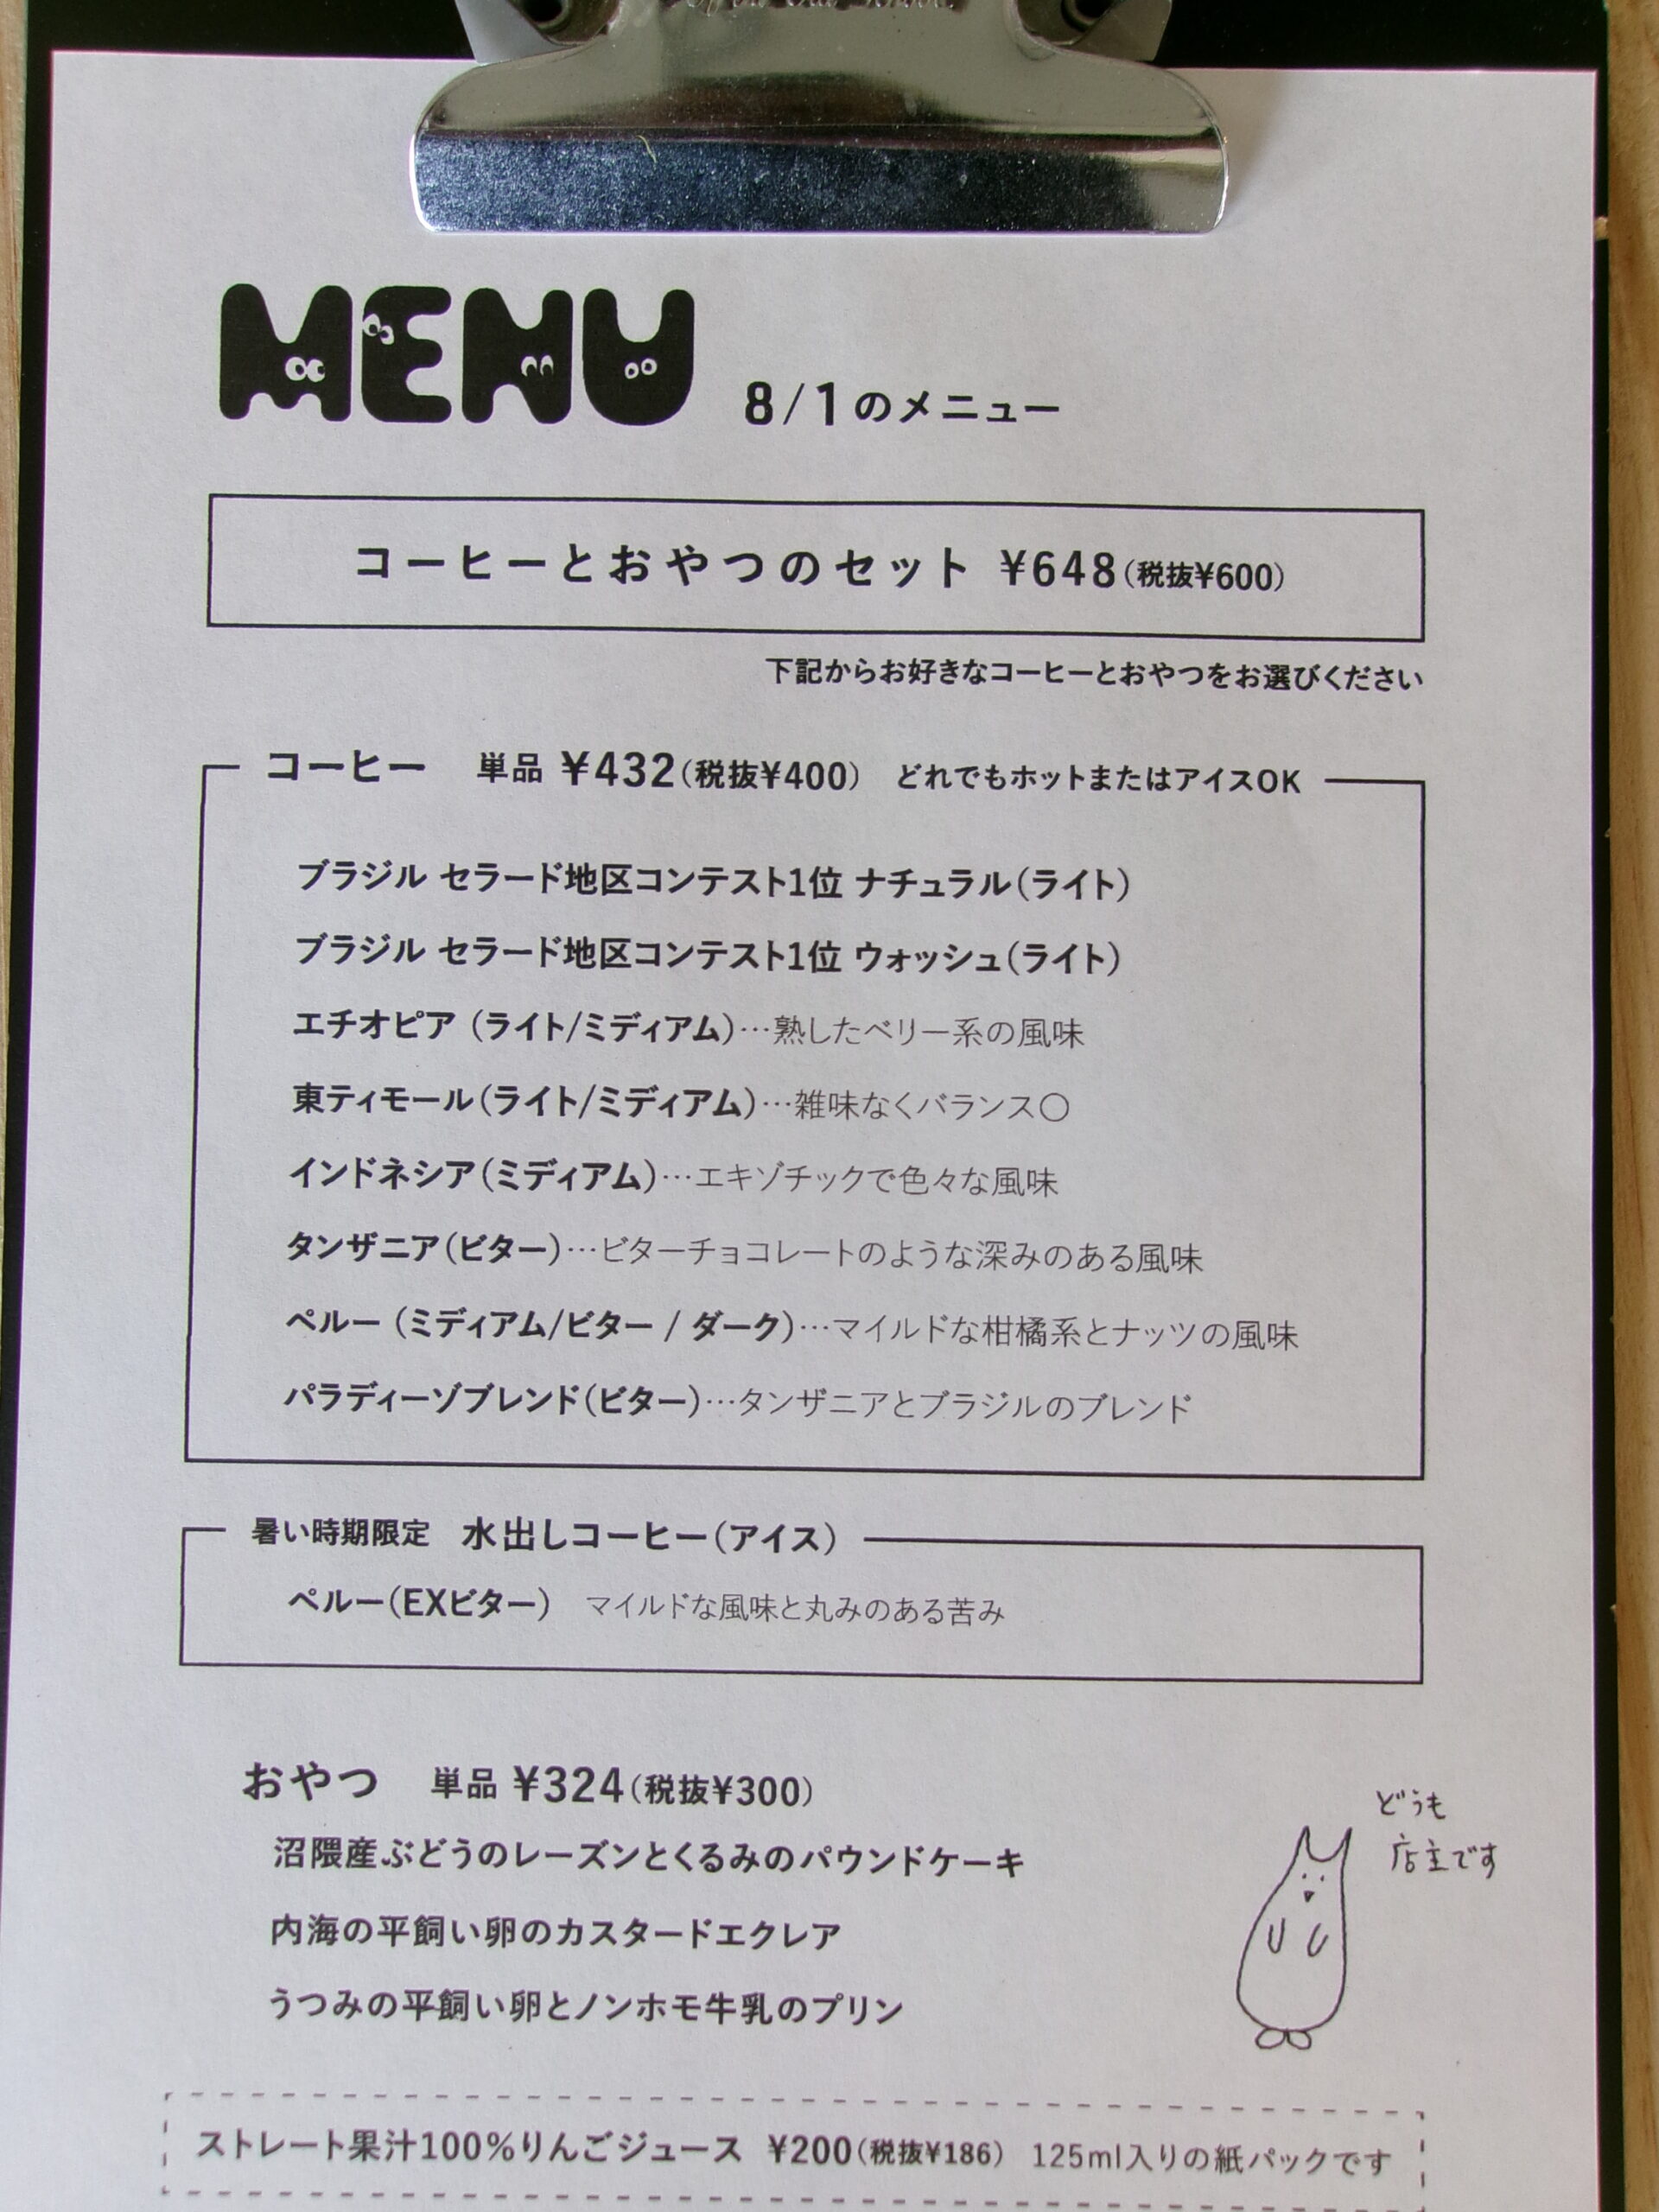 MENU 8/1のメニュー
コーヒーとおやつのセット ¥648(税抜¥600)
下記からお好きなコーヒーとおやつをお選びください
コーヒー 単品 ¥432(税抜¥400) どれでもホットまたはアイスOK
ブラジル セラード地区コンテスト1位 ナチュラル(ライト)
ブラジル セラード地区コンテスト1位 ウォッシュ(ライト)
エチオピア (ライト/ミディアム)…熟したベリー系の風味
東ティモール(ライト/ミディアム)…雑味なくバランス〇
インドネシア(ミディアム)…エキゾチックで色々な風味
タンザニア(ビター)…ビターチョコレートのような深みのある風味
ペルー (ミディアム/ビター / ダーク)…マイルドな柑橘系とナッツの風味
パラディーゾブレンド(ビター)…タンザニアとブラジルのブレンド
暑い時期限定 水出しコーヒー(アイス)
ペルー(EXビター) マイルドな風味と丸みのある苦み
おやつ 単品 ¥324(税抜¥300)
沼隈産ぶどうのレーズンとくるみのパウンドケーキ
内海の平飼い卵のカスタードエクレア
うつみの平飼い卵とノンホモ牛乳のプリン
どうも
店主です
ストレート果汁100%りんごジュース ¥200(税抜¥186) 125ml入りの紙パックです